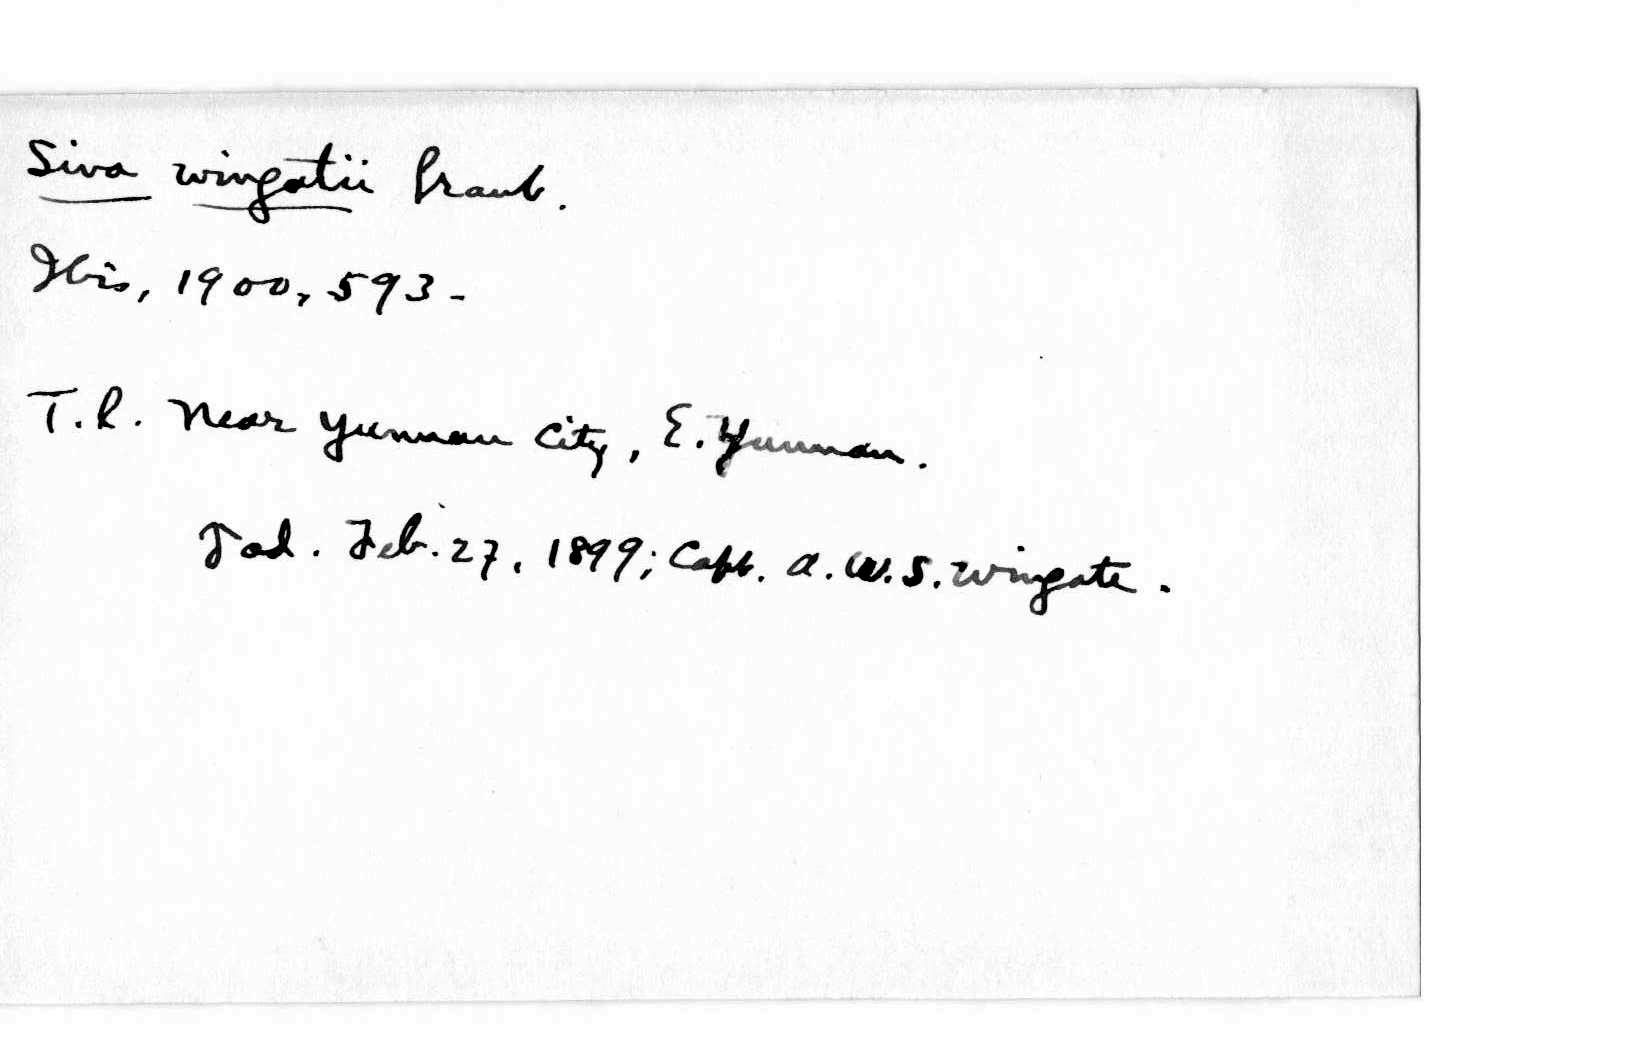 Siva wingatii Grant.
Ibis, 1900, 593-
T.L. Near Yunnan City, E. Yunnan.
♂ ad. Feb. 27, 1899; Capt. A. W. S. Wingate.